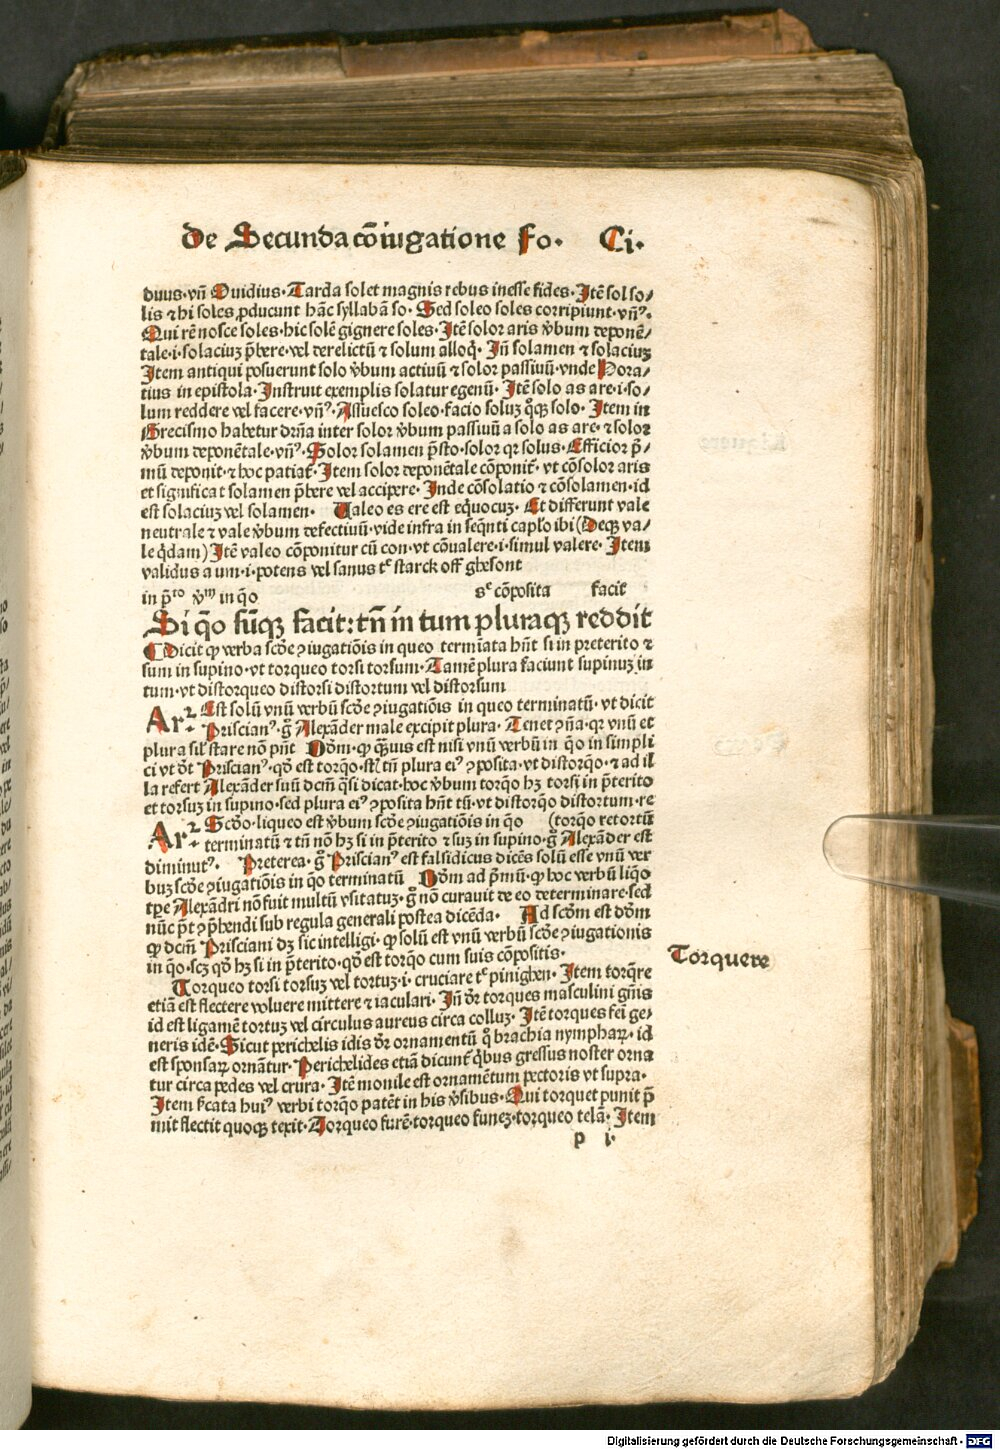 de Secunda cōiugatione Fo. Ci.
duus.vñ Ouidius.Tarda solet magnis rebus inesse fides.Itē sol so/
lis ⁊ hi soles ꝓducunt hāc syllabā so. Sed soleo soles corripiunt.vñꝰ.
Qui rē nosce soles.hic solē gignere soles.Itē solor aris v̄bum deponē/
tale.i.solaciuꝫ p̄bere.vel derelictū ⁊ solum alloq̄. Iñ solamen ⁊ solaciuꝫ
Item antiqui posuerunt solo v̄bum actiuū ⁊ solor passiuū.vnde Hora/
tius in epistola.Instruit exemplis solatur egenū. Itē solo as are.i.so/
lum reddere vel facere.vñꝰ.Assuesco soleo.facio soluꝫ q̄ꝙ solo. Item in
Grecismo habetur dr̄na inter solor v̄bum passiuū a solo as are.⁊ solor
v̄bum deponētale.vñꝰ.Solor solamen p̄sto.solor qꝛ solus.Efficior p̄/
mū deponit.⁊ hoc patiat̄.Item solor deponētale cōponit̄. vt cōsolor aris
et significat solamen p̄bere vel accipere. Inde cōsolatio ⁊ cōsolamen.id
est solacium vel solamen. Ualeo es ere est equocuꝫ. Et differunt vale
neutrale ⁊ vale v̄bum defectiuū.vide infra in seq̄nti caplo ibi(Deqꝫ va/
le q̄dam)Itē valeo cōponitur cū con.vt cōualere.i.simul valere. Item
validus a um.i.potens vel sanus tᵉ starck off ghesont
in p̄ᵗᵒ v̄ᵐ in q̄o sᶜ cōposita facit
Si q̄o sūqꝫ facit:tn̄ in tum pluraqꝫ reddit
Dicit ꝙ verba scd̄e ꝯiugatiōis in queo termīata hn̄t si in preterito ⁊
sum in supino.vt torqueo torsi torsum.Tamē plura faciunt supinuꝫ in
tum.vt distorqueo distorsi distortum vel distorsum
Arꝛ. Est solū vnū verbū scd̄e ꝯiugatiōis in queo terminatū.vt dicit
Priscianꝰ.g̊ Alexāder male excipit plura. Tenet ꝯña.qꝛ vnū et
plura sil̄ stare nō pn̄t Dōm.ꝙ q̄uis est nisi vnū verbū in q̄o in simpli
ci vt d̄t Priscianꝰ.qd̄ est torq̄o.sꝫ tn̄ plura eiꝰ ꝯposita.vt distorq̄o.⁊ ad il
la refert Alexāder suū dcm̄ q̄si dicat.hoc v̄bum torq̄o hꝫ torsi in p̄terito
et torsuꝫ in supino.sed plura eiꝰ ꝯposita hn̄t tū.vt distorq̄o distortum.re
Arꝛ. Scd̄o.liqueo est v̄bum scd̄e ꝯiugatiōis in q̄o (torq̄o retortū
terminatū ⁊ tn̄ nō hꝫ si in p̄terito ⁊ suꝫ in supino.g̊ Alexāder est
diminutꝰ. Preterea.g̊ Priscianꝰ est falsidicus dicēs solū esse vnū ver
buꝫ scd̄e ꝯiugatiōis in q̄o terminatū Dōm ad p̄mū.ꝙ hoc verbū liq̄o
tp̄e Alexādri nō fuit multū vsitatuꝫ.g̊ nō curauit de eo determinare.sed
nūc p̄t ꝯp̄hendi sub regula generali postea dicēda. Ad scd̄m est dōm
ꝙ dcm̄ Prisciani dꝫ sic intelligi.ꝙ solū est vnū verbū scd̄e ꝯiugationis
in q̄o.scꝫ qd̄ hꝫ si in p̄terito.qd̄ est torq̄o cum suis cōpositis.
Torqueo torsi torsuꝫ vel tortuꝫ.i.cruciare tᵉ pinighen. Item torq̄re
etiā est flectere voluere mittere ⁊ iaculari. Iñ d̄r torques masculini gn̄is
id est ligamē tortuꝫ vel circulus aureus circa colluꝫ. Itē torques fei ge/
neris idē.Sicut perichelis idis d̄r ornamentū q̊ brachia nymphaꝝ.id
est sponsaꝝ ornātur.Perichelides etiā dicunt̄ q̄bus gressus noster orna
tur circa pedes vel crura.Itē monile est ornamētum pectoris vt supra.
Item ſcata huiꝰ verbi torq̄o patēt in his v̄sibus.Qui torquet punit p̄
mit flectit quoqꝫ texit.Torqueo furē.torqueo funeꝫ.torqueo telā. Item
p i.
Torquere
Digitalisierung gefördert durch die Deutsche Forschungsgemeinschaft - DFG